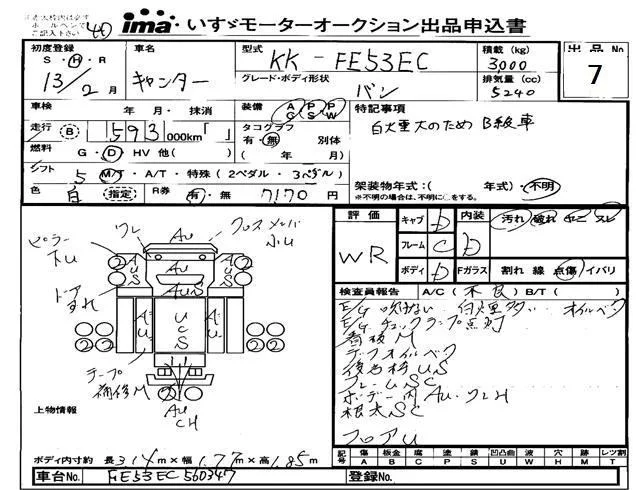 ima いすゞモーターオークション出品申込書
出品No 7
初度登録 S・H・R 13/2月
車名 キャンター
型式 KK-FE53EC
積載(kg) 3,000
グレード・ボディ形状 バン
排気量(cc) 5240
車検 年・月・抹消
装備 AC PS PW
特記事項
白煙重大のため B級車
走行 B 593 000km「 」
タコグラフ 有・無 別体 ( 年 月)
燃料 G・D・HV 他( )
シフト 5 MT・A/T・特殊(2ペダル・3ペダル)
色 白 (指定) R券 有・無 7170 円
架装物年式:( 年式)・不明
※不明の場合は、不明に○をする。
評価 WR
キャブ D
フレーム C
ボディ D
内装 D 汚れ 破れ ヤニ スレ
Fガラス 割れ 線 点傷 イバリ
検査員報告 A/C(不良)B/T( )
E/G 吹けない 白煙多い オイルベタ
E/Gチェックランプ点灯
看板M
デフオイルベタ
後各枠US
フレームSC
ボデー内AU・ワレH
根太SC
フロアU
ピラー下U
ワレ
AU
クロスメンバ小U
AUS
AUS
AUS
ドアすれ
AU
UCS
AU
2
2
2
2
テープ補修M
AU
CH
上物情報
ボディ内寸約 長3.14m×幅1.77m×高1.85m
記号 傷A 板金B 腐C 塗P 錆S 凹凸曲U 波W 穴H 跡M レツ割T
車台No. FE53EC560347
登録No.